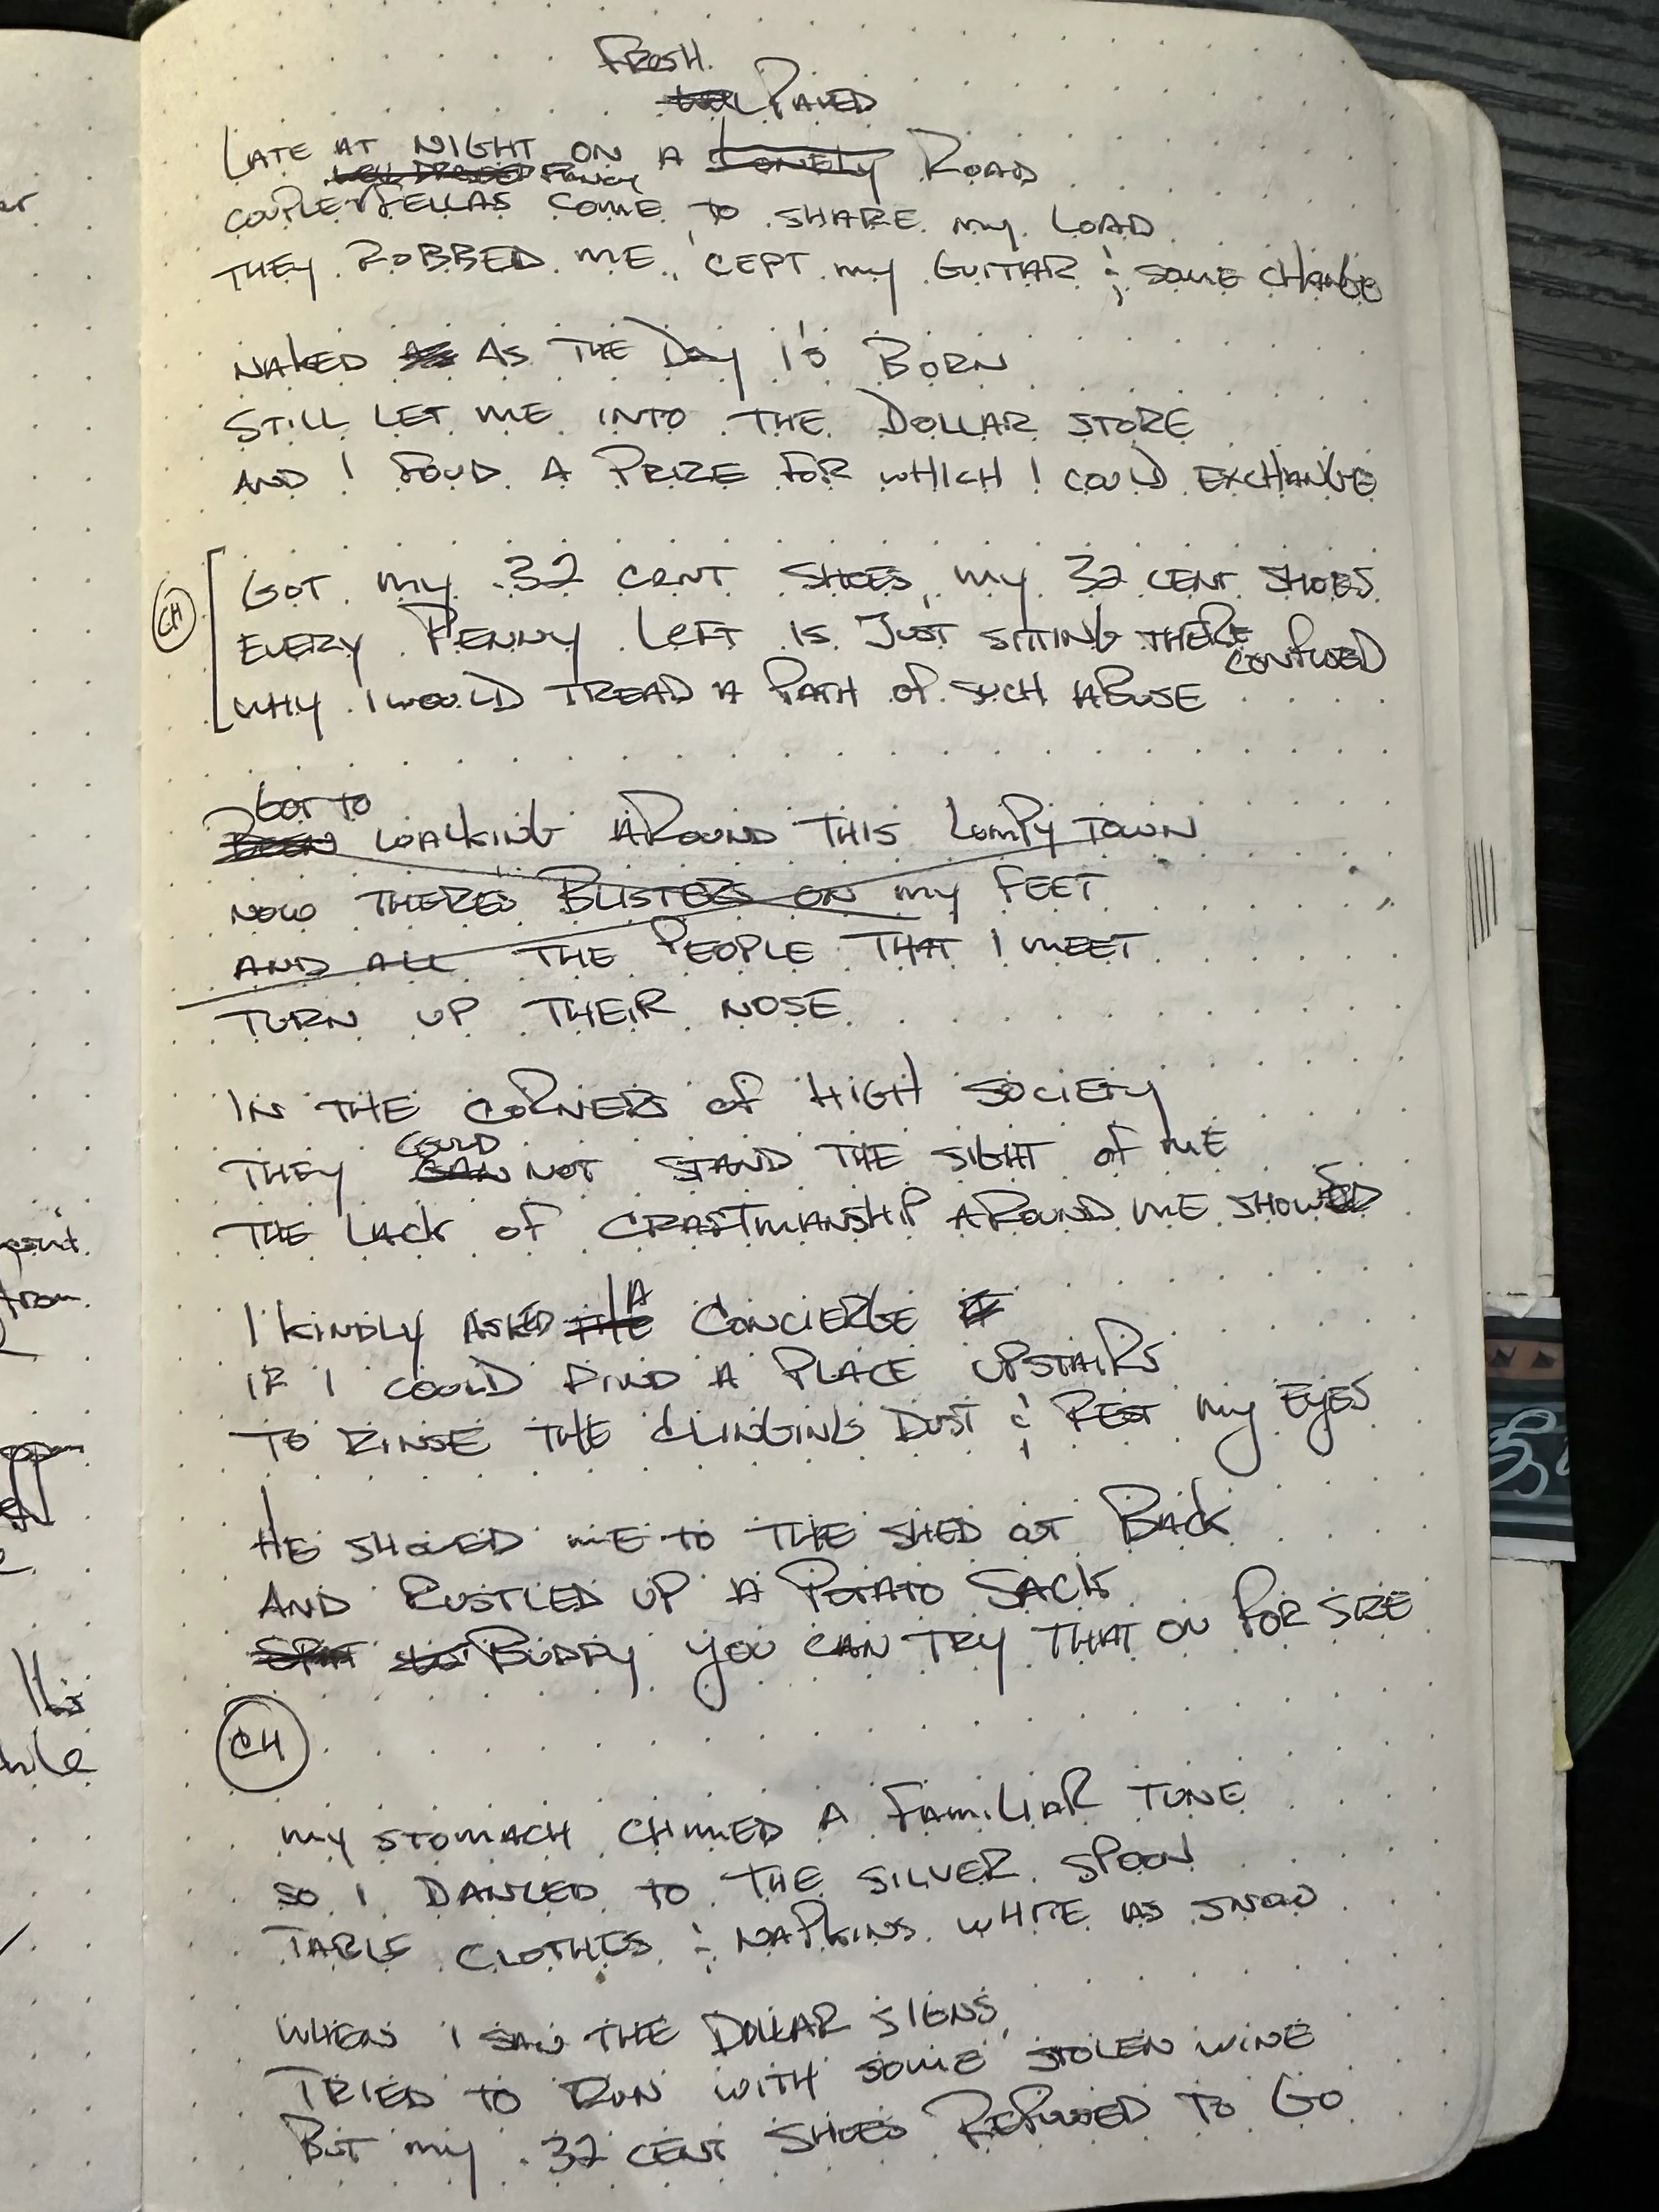 FRESH
PAVED
LATE AT NIGHT ON A LONELY ROAD
WELL DRESSED FANCY
COUPLE FELLAS COME TO SHARE MY LOAD
THEY ROBBED ME, 'CEPT MY GUITAR & SOME CHANGE
NAKED AS AS THE DAY IS BORN
STILL LET ME INTO THE DOLLAR STORE
AND I FOUD A PRIZE FOR WHICH I COULD EXCHANGE
CH
GOT MY .32 CENT SHOES, MY 32 CENT SHOES
EVERY PENNY LEFT IS JUST SITTING THERE
CONFUSED
WHY I WOULD TREAD A PATH OF SUCH ABUSE
GOT TO
BEEN WALKING AROUND THIS LUMPY TOWN
NOW THERES BLISTERS ON MY FEET
AND ALL THE PEOPLE THAT I MEET
TURN UP THEIR NOSE
IN THE CORNERS OF HIGH SOCIETY
COULD
THEY CAN NOT STAND THE SIGHT OF ME
THE LACK OF CRAFTMANSHIP AROUND ME SHOWED
A
I KINDLY ASKED THE CONCIERGE IF
IF I COULD FIND A PLACE UPSTAIRS
TO RINSE THE CLINGING DUST & REST MY EYES
HE SHOWED ME TO THE SHED OUT BACK
AND RUSTLED UP A POTATO SACK
BUDDY YOU CAN TRY THAT ON FOR SIZE
CH
MY STOMACH CHIMED A FAMILIAR TUNE
SO I DANCED TO THE SILVER SPOON
TABLE CLOTHES & NAPKINS WHITE AS SNOW
WHEN I SAW THE DOLLAR SIGNS,
TRIED TO RUN WITH SOME STOLEN WINE
BUT MY .32 CENT SHOES REFUSED TO GO